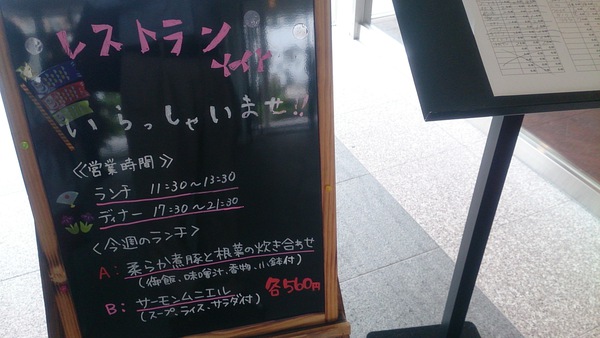 レストラン
いらっしゃいませ!!
≪営業時間≫
ランチ 11:30～13:30
ディナー 17:30～21:30
〈今週のランチ〉
A: 柔らか煮豚と根菜の炊き合わせ
(御飯、味噌汁、香物、小鉢付)
B: サーモンムニエル
(スープ、ライス、サラダ付)
各560円